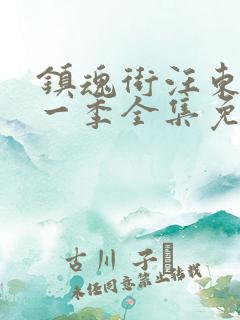 鎮魂街汪東
一季全集免
古川 子
未经同意禁止转载